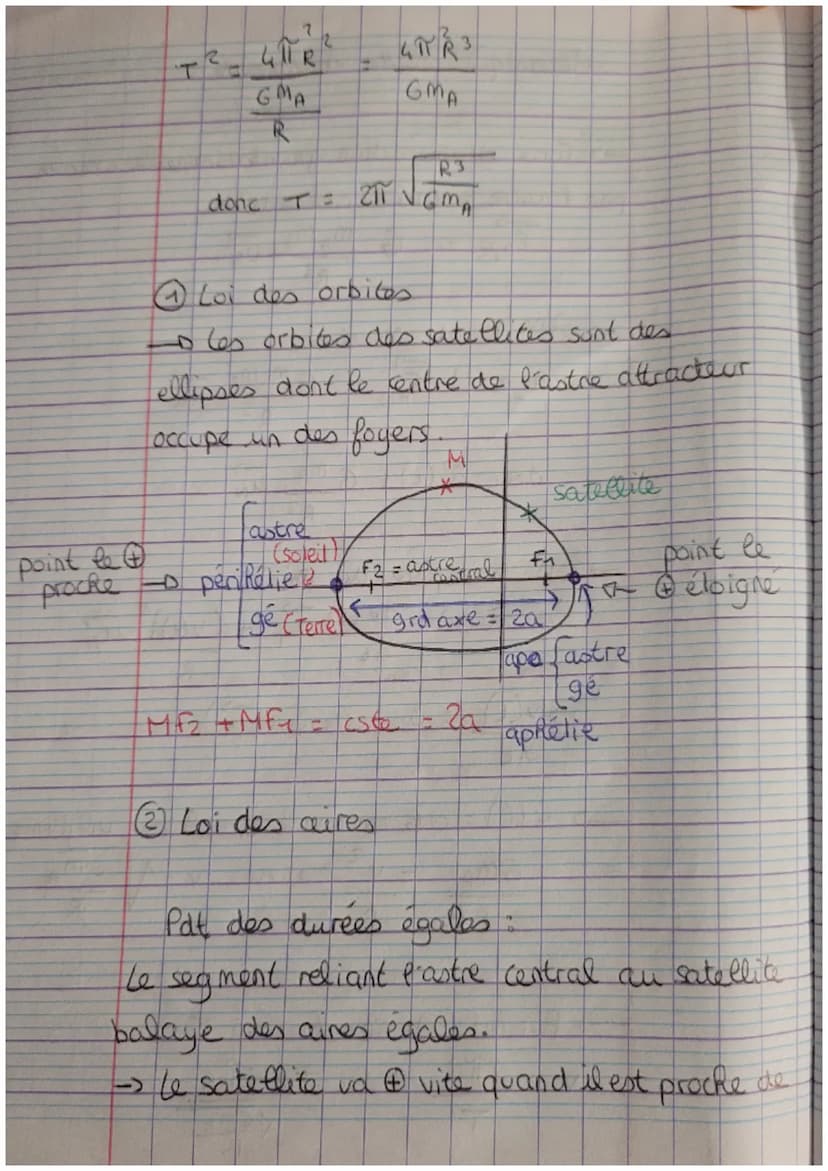 T² = 4π²R² / (GMA / R) = 4π²R³ / GmA
donc T = 2π √(R³ / GmA)
① Loi des orbites
→ Les orbites des satellites sont des
ellipses dont le centre de l'astre attracteur
occupe un des foyers.
M
satellite
astre
(soleil)
point le ⊕
proche → périhélie
gé (Terre)
F2 = astre
central
F1
point le
⊕ éloigné
grd axe = 2a
apo { astre
gé
MF2 + MF1 = cste = 2a
aphélie
② Loi des aires
Pdt des durées égales :
Le segment reliant l'astre central au satellite
balaye des aires égales.
→ Le satellite va ⊕ vite quand il est proche de